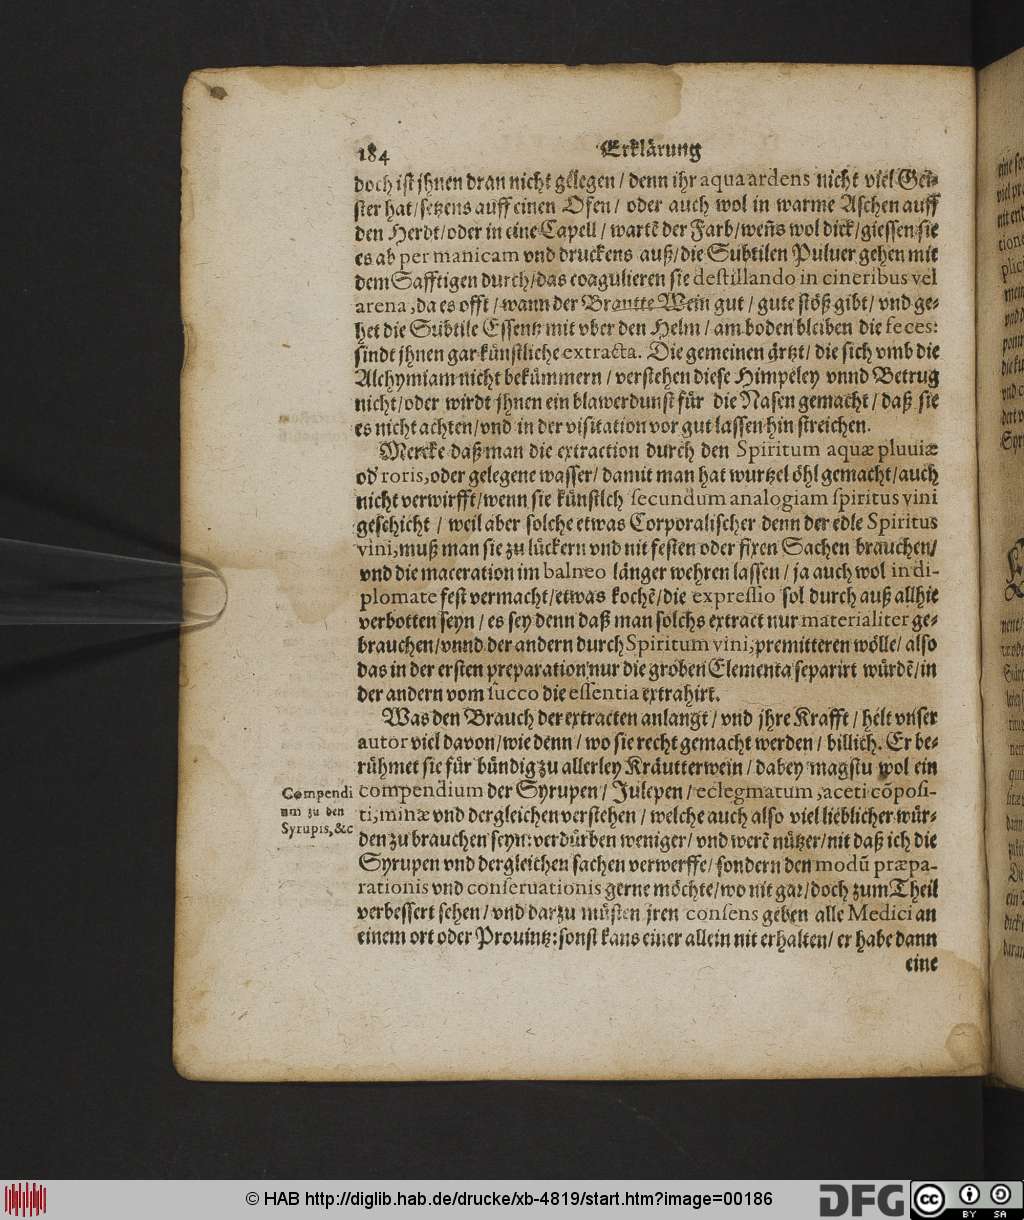 184 Erklärung
doch ist jhnen dran nicht gelegen / denn ihr aqua ardens nicht viel Gei-
ster hat / setzens auff einen Ofen / oder auch wol in warme Aschen auff
den Herdt / oder in eine Capell / wartē der Farb / weñs wol dick / giessen sie
es ab per manicam vnd druckens auß / die Subtilen Puluer gehen mit
dem Safftigen durch / das coagulieren sie destillando in cineribus vel
arena, da es offt / wann der Brantte Wein gut / gute stöß gibt / vnd ge-
het die Subtile Essentz mit vber den Helm / am boden bleiben die feces:
sindt jhnen gar künstliche extracta. Die gemeinen ärtzt / die sich vmb die
Alchymiam nicht bekümmern / verstehen diese Himpeley vnnd Betrug
nicht / oder wirdt jhnen ein blawer dunst für die Nasen gemacht / daß sie
es nicht achten / vnd in der visitation vor gut lassen hin streichen.
Mercke daß man die extraction durch den Spiritum aquæ pluuiæ
od' roris, oder gelegene wasser / damit man hat wurtzel öhl gemacht / auch
nicht verwirfft / wenn sie künstlch secundum analogiam spiritus vini
geschicht / weil aber solche etwas Corporalischer denn der edle Spiritus
vini, muß man sie zu lückern vnd nit festen oder fixen Sachen brauchen /
vnd die maceration im balneo länger wehren lassen / ja auch wol in di-
plomate fest vermacht / etwas kochē / die expressio sol durch auß allhie
verbotten seyn / es sey denn daß man solchs extract nur materialiter ge-
brauchen / vnnd der andern durch Spiritum vini, premitteren wölle / also
das in der ersten preparation nur die groben Elementa separirt würdē / in
der andern vom succo die essentia extrahirt.
Was den Brauch der extracten anlangt / vnd jhre Krafft / helt vnser
autor viel davon / wie denn / wo sie recht gemacht werden / billich. Er be-
rühmet sie für bündig zu allerley Kräutterwein / dabey magstu wol ein
compendium der Syrupen / Julepen / eclegmatum, aceti cōposi-
ti, minæ vnd dergleichen verstehen / welche auch also viel lieblicher wür-
den zu brauchen seyn: verdürben weniger / vnd werē nützer / nit daß ich die
Syrupen vnd dergleichen sachen verwerffe / sondern den modū præpa-
rationis vnd conseruationis gerne möchte / wo nit gar / doch zum Theil
verbessert sehen / vnd darzu müsten jren consens geben alle Medici an
einem ort oder Prouintz: sonst kans einer allein nit erhalten / er habe dann
eine
Compendi
um zu den
Syrupis, &c
© HAB http://diglib.hab.de/drucke/xb-4819/start.htm?image=00186
DFG
cc
BY SA